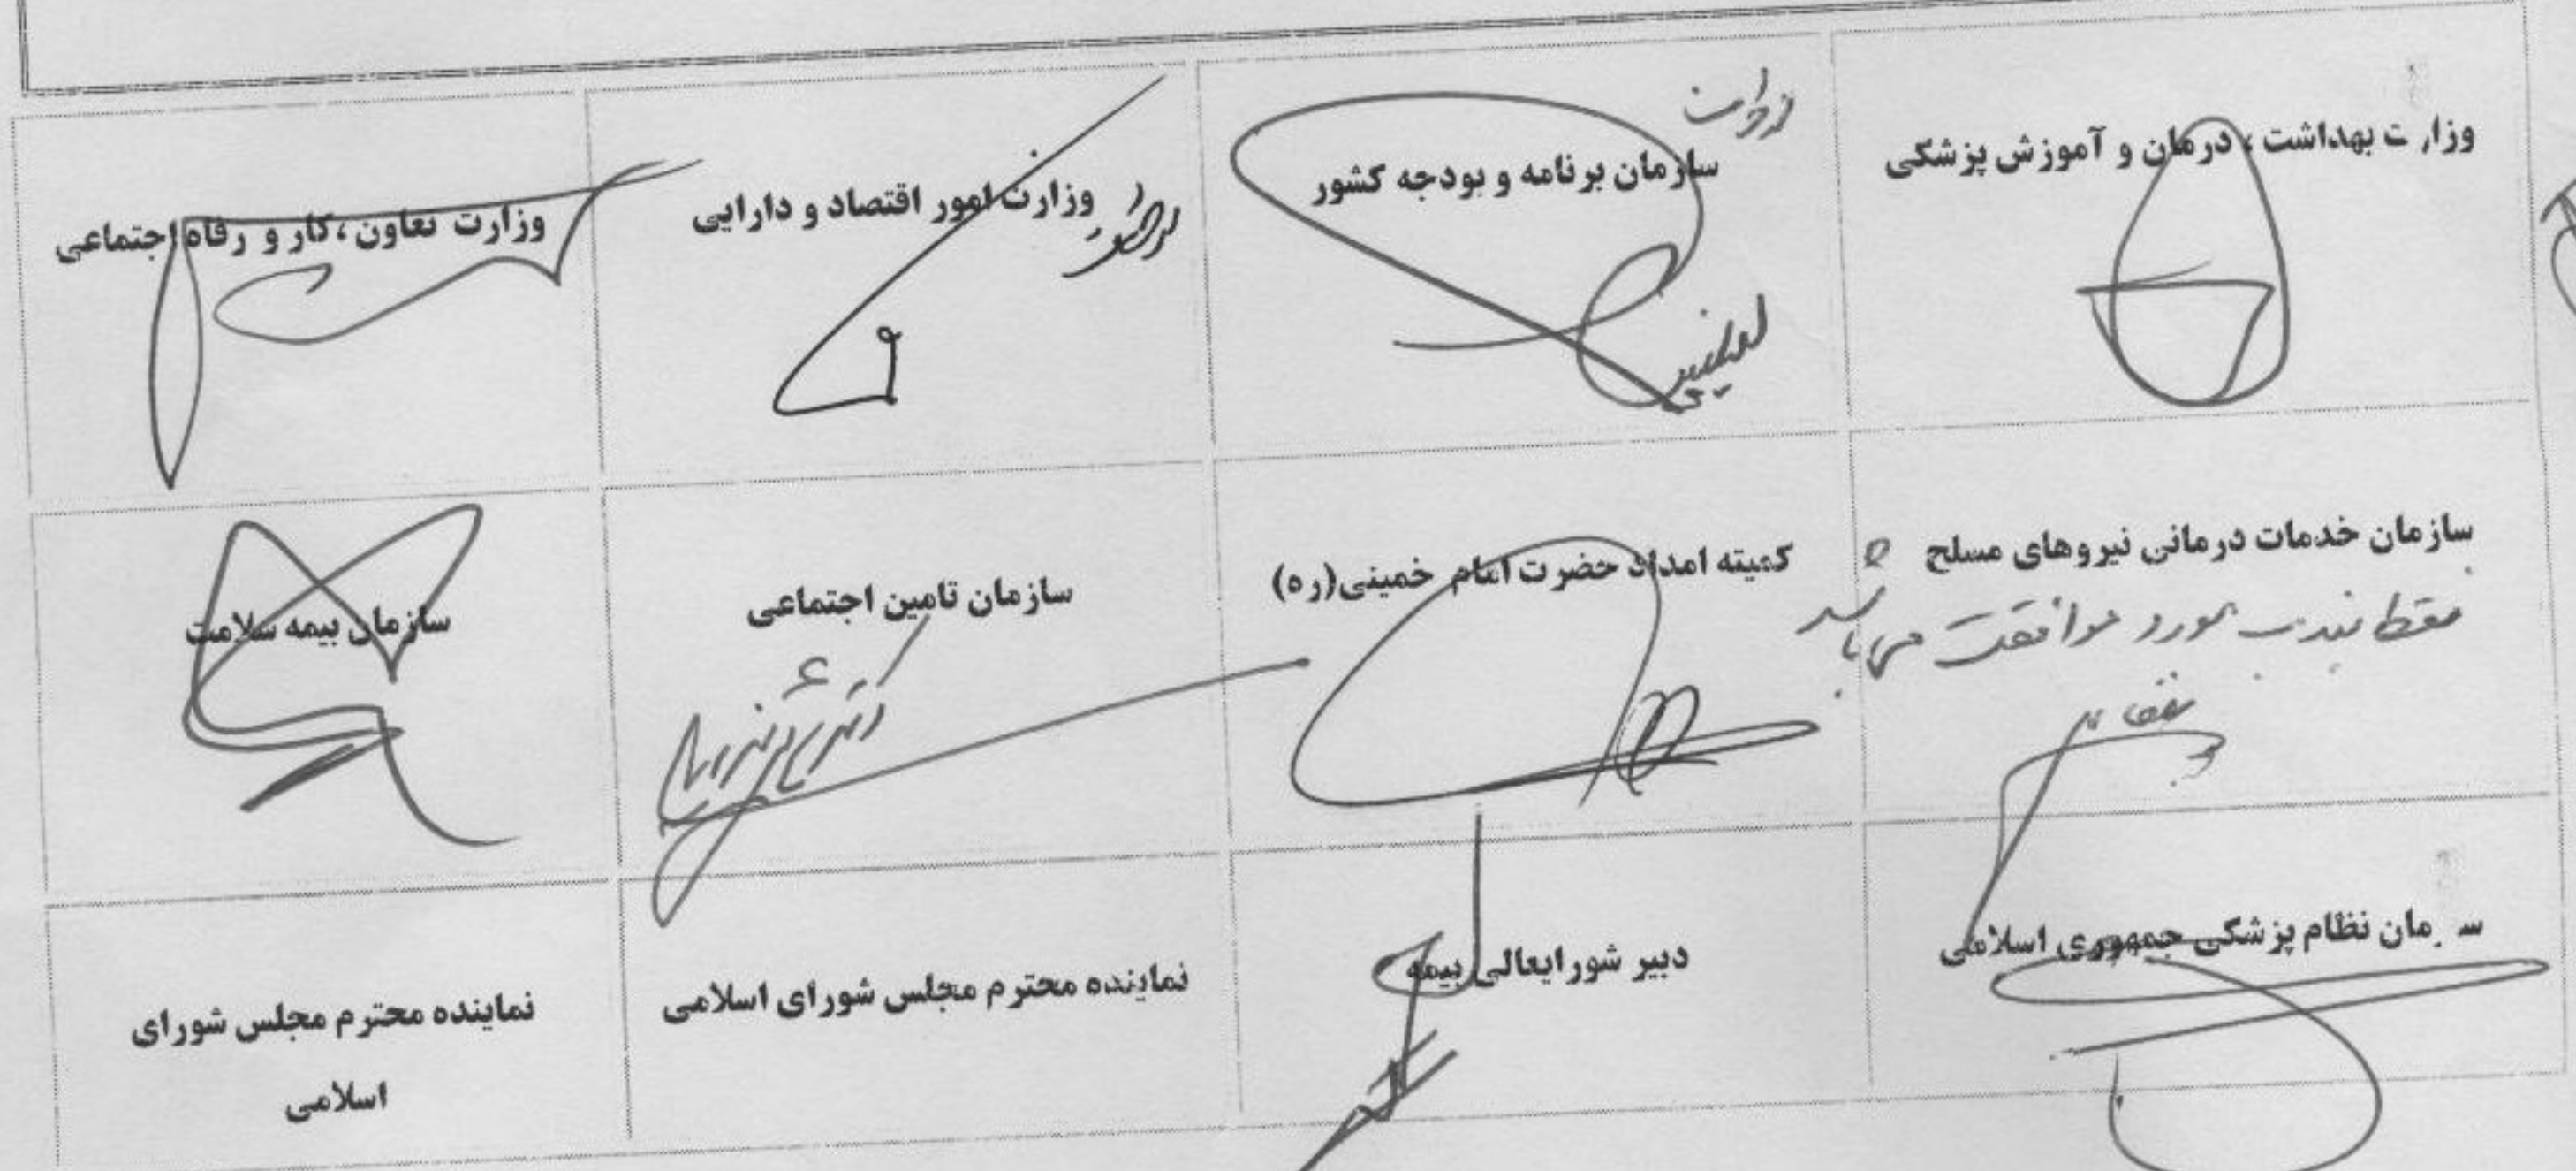 وزارت بهداشت ، درمان و آموزش پزشکی
سازمان برنامه و بودجه کشور
وزارت امور اقتصاد و دارایی
وزارت تعاون ،کار و رفاه اجتماعی
سازمان خدمات درمانی نیروهای مسلح
مورد موافقت می باشد
کمیته امداد حضرت امام خمینی(ره)
سازمان تامین اجتماعی
سازمان بیمه سلامت
سازمان نظام پزشکی جمهوری اسلامی
دبیر شورایعالی بیمه
نماینده محترم مجلس شورای اسلامی
نماینده محترم مجلس شورای
اسلامی